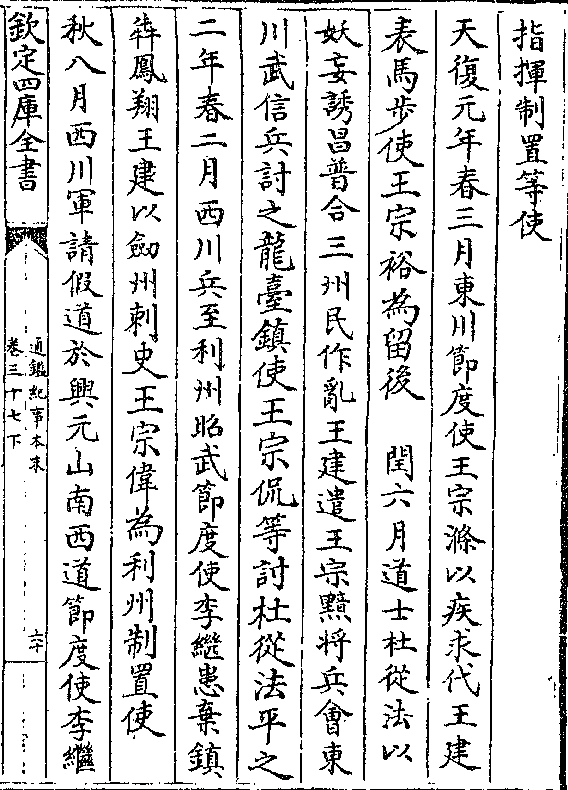 指揮制置等使
天復元年春三月東川節度使王宗滌以疾求代王建
表馬步使王宗裕為留後　閏六月道士杜從法以
妖妄誘昌普合三州民作亂王建遣王宗黯將兵會東
川武信兵討之龍臺鎮使王宗侃等討杜從法平之
二年春二月西川兵至利州昭武節度使李繼忠棄鎮
犇鳳翔王建以劒州刺史王宗偉為利州制置使
秋八月西川軍請假道於興元山南西道節度使李繼
欽定四庫全書
通鑑紀事本末
卷三十七下
六十